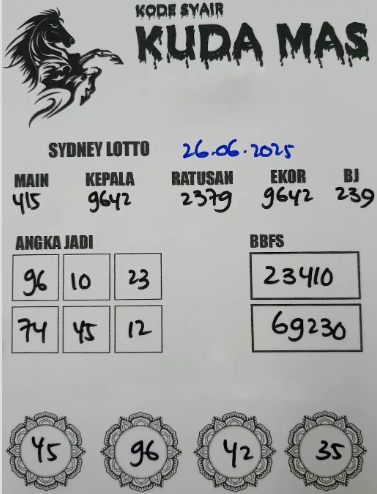 KODE SYAIR
KUDA MAS
SYDNEY LOTTO 26.06.2025
MAIN KEPALA RATUSAN EKOR BJ
415 9642 2379 9642 239
ANGKA JADI BBFS
96 10 23 23410
74 45 12 69230
45 96 42 35